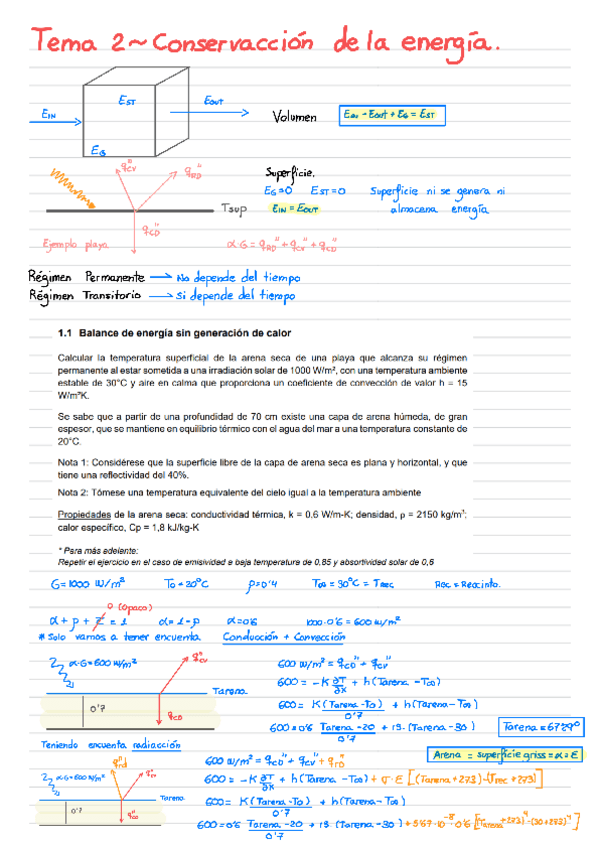 Tema 2 ~ Conservacción de la energía.
EIN
EST
EOUT
EG
Volumen
EIN - EOUT + EG = EST
q"CV
q"RD
Tsup
q"CD
Ejemplo playa
Superficie.
EG=0 EST=0
EIN = EOUT
Superficie ni se genera ni
almacena energía
α·G = q"RD + q"CV + q"CD
Régimen Permanente → No depende del tiempo
Régimen Transitorio → Si depende del tiempo
1.1 Balance de energía sin generación de calor
Calcular la temperatura superficial de la arena seca de una playa que alcanza su régimen
permanente al estar sometida a una irradiación solar de 1000 W/m², con una temperatura ambiente
estable de 30°C y aire en calma que proporciona un coeficiente de convección de valor h = 15
W/m²K.
Se sabe que a partir de una profundidad de 70 cm existe una capa de arena húmeda, de gran
espesor, que se mantiene en equilibrio térmico con el agua del mar a una temperatura constante de
20°C.
Nota 1: Considérese que la superficie libre de la capa de arena seca es plana y horizontal, y que
tiene una reflectividad del 40%.
Nota 2: Tómese una temperatura equivalente del cielo igual a la temperatura ambiente
Propiedades de la arena seca: conductividad térmica, k = 0,6 W/m-K; densidad, ρ = 2150 kg/m³;
calor específico, Cp = 1,8 kJ/kg-K
* Para más adelante:
Repetir el ejercicio en el caso de emisividad a baja temperatura de 0,85 y absortividad solar de 0,6
G=1000 W/m² T0=20°C ρ=0'4 T∞ = 30°C = Trec Rec = Recinto.
0 (opaco)
α + ρ + τ = 1 α=1-ρ α=0'6 1000·0'6 = 600 w/m²
* Solo vamos a tener encuenta Conducción + Convección
α·G=600 w/m²
q"CV
Tarena
0'7
q"CD
600 W/m² = q"CD + q"CV
600 = -K ∂T/∂x + h(Tarena - T∞)
600 = K (Tarena - T0)/0'7 + h(Tarena - T∞)
600 = 0'6 Tarena - 20/0'7 + 15·(Tarena - 30)
Tarena = 67'29°
Teniendo encuenta radiacción
Arena = superficie griss = α = ε
α·G=600 w/m²
q"rd
q"cv
Tarena
0'7
q"CD
600 w/m² = q"CD + q"CV + q"rd
600 = -K ∂T/∂x + h(Tarena - T∞) + σ·ε [(Tarena+273)-(Trec+273)]
600 = K (Tarena - T0)/0'7 + h(Tarena - T∞)
600 = 0'6 Tarena - 20/0'7 + 15 (Tarena - 30) + 5'67·10⁻⁸·0'6 [(Tarena+273)⁴-(30+273)⁴]